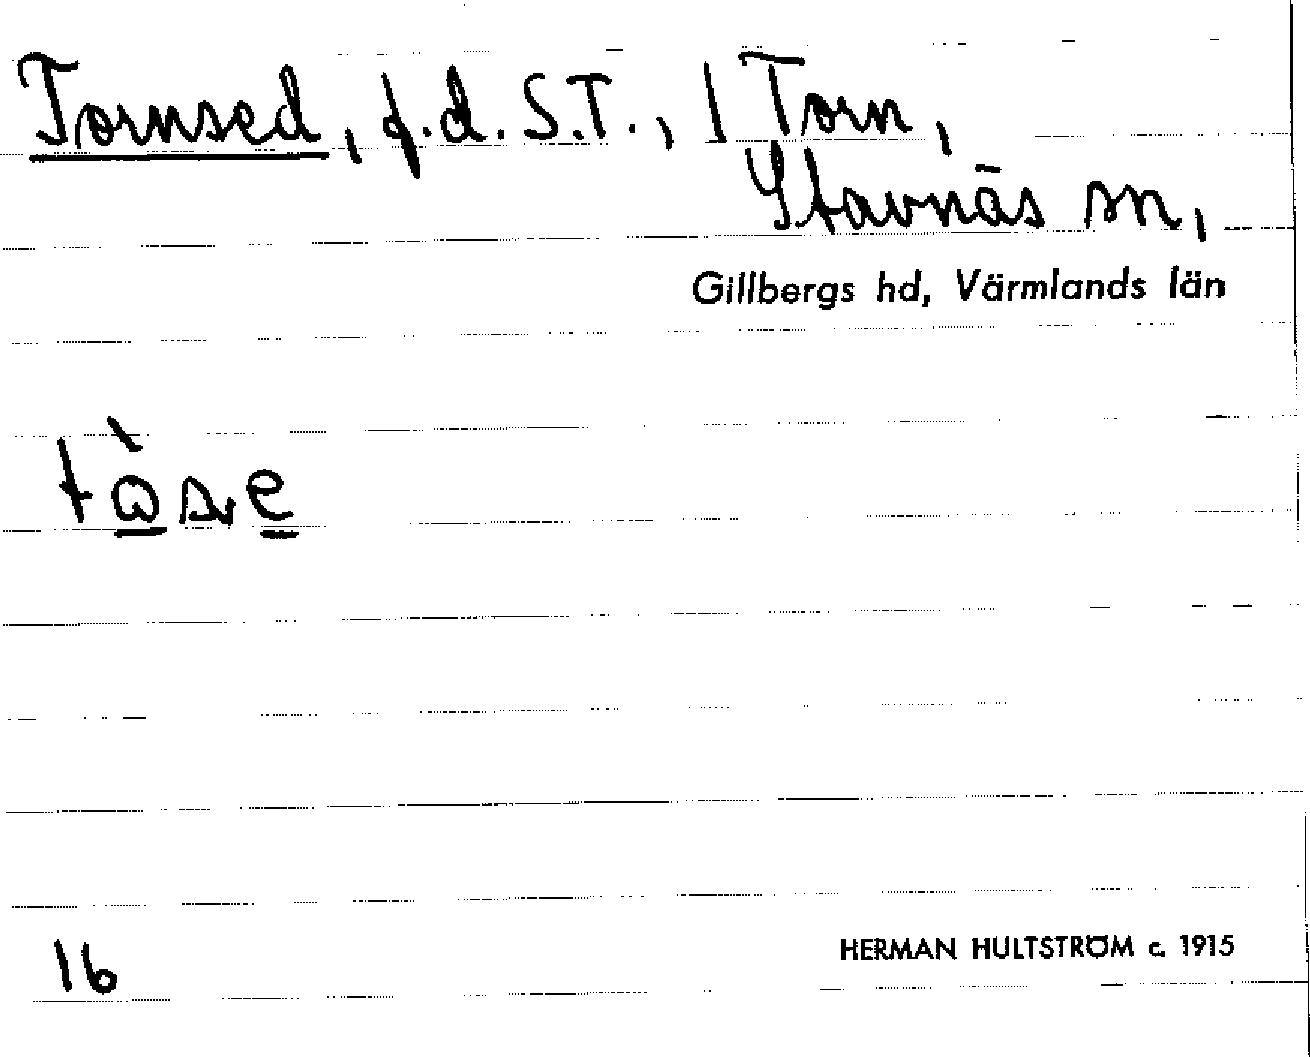 Tornsed, f.d. S.T., 1 Torn,
Stavnäs sn,
Gillbergs hd, Värmlands län
16
HERMAN HULTSTRÖM c. 1915